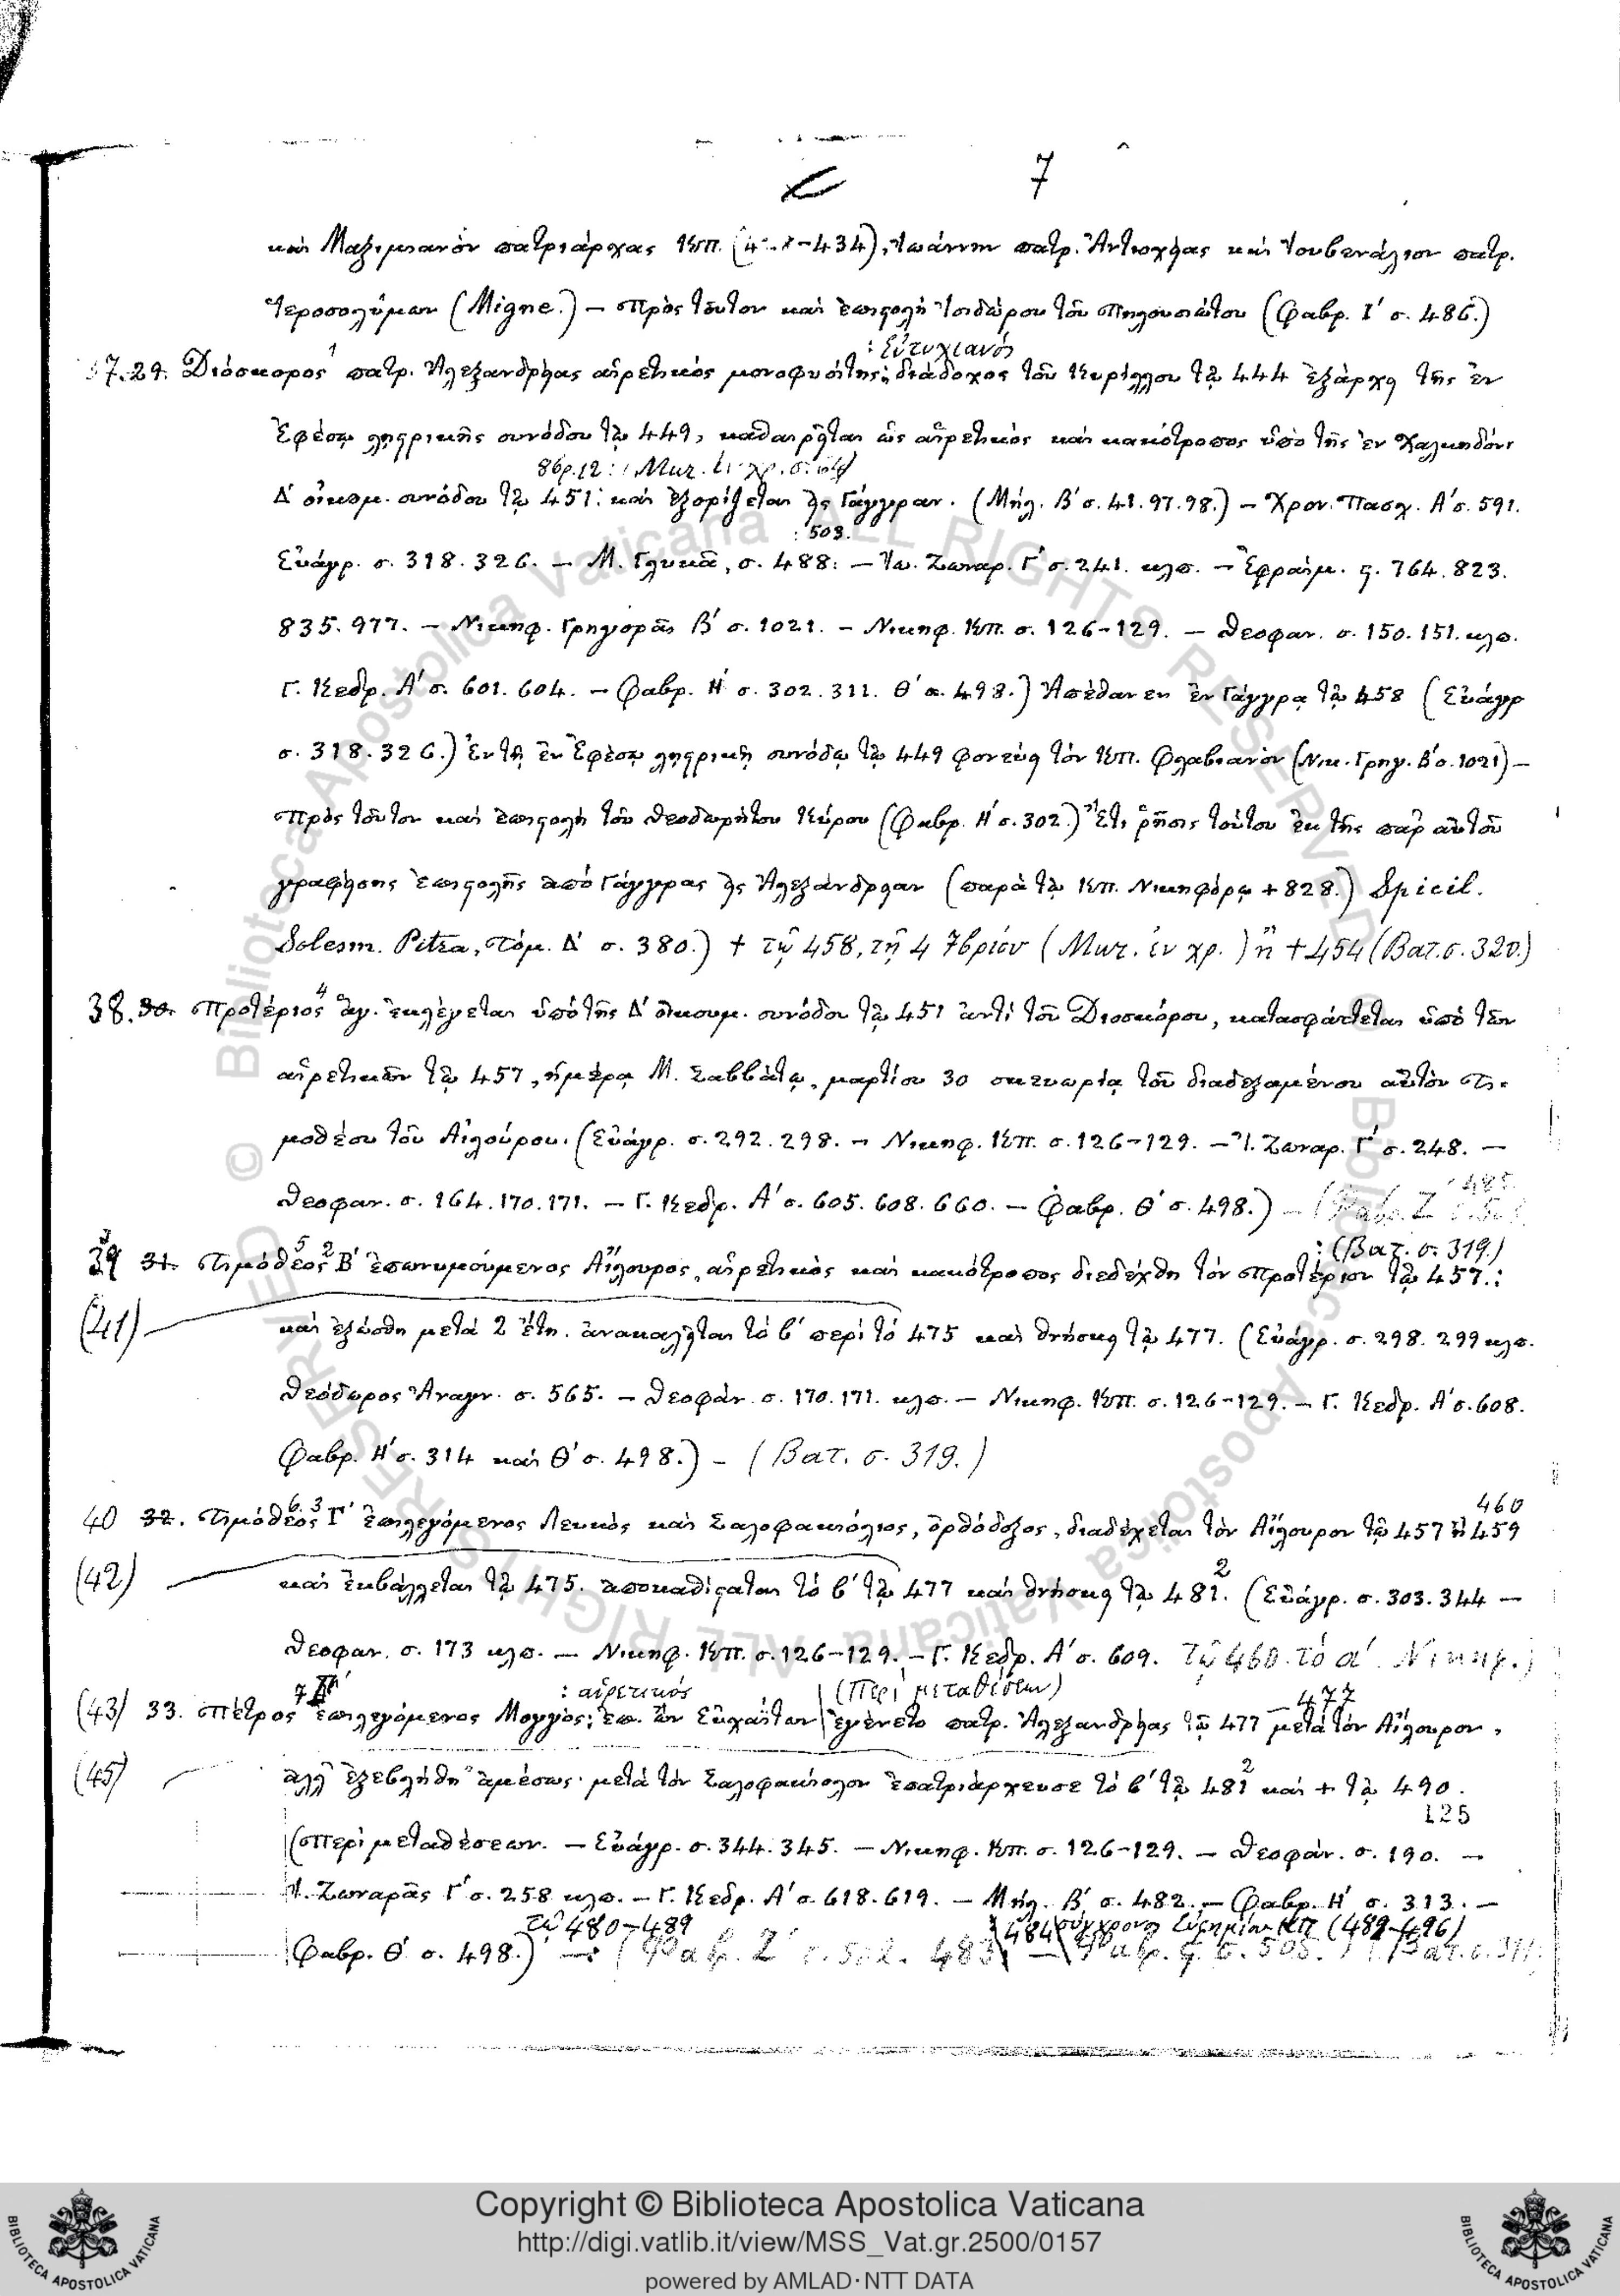 7
καὶ Μαξιμιανὸν πατριάρχας Κπ. (4 -434), Ἰωάννην πατρ. Ἀντιοχείας καὶ Ἰουβενάλιον πατρ.
Ἱεροσολύμων (Migne.) – Πρὸς τοῦτον καὶ ἐπιστολὴ Ἰσιδώρου τοῦ Πηλουσιώτου (Φαβρ. Ι΄ σ. 486.)
: Εὐτυχιανός
37. 29. Διόσκορος 1 πατρ. Ἀλεξανδρείας αἱρετικὸς μονοφυσίτης: διάδοχος τοῦ Κυρίλλου τῷ 444 ἐξάρχει τῆς ἐν
Ἐφέσῳ ληστρικῆς συνόδου τῷ 449, καθαιρεῖται ὡς αἱρετικὸς καὶ κακότροπος ὑπὸ τῆς ἐν Χαλκηδόνι
8βρ. 12 : (Μωτ. ἐν χρ. σ.
Δ΄ οἰκουμ. συνόδου τῷ 451: καὶ ἐξορίζεται εἰς Γάγγραν. (Μήλ. Β΄ σ. 41. 97. 98.) – Χρον. Πασχ. Α΄ σ. 591.
: 503.
Εὐάγρ. σ. 318. 326. – Μ. Γλυκᾶ, σ. 488: – Ἰω. Ζωναρ. Γ΄ σ. 241. κλπ. – Ἐφραίμ. ς. 764. 823.
835. 977. – Νικηφ. Γρηγορᾶς Β΄ σ. 1021. – Νικηφ. Κπ. σ. 126-129. – Θεοφαν. σ. 150. 151. κλπ.
Γ. Κεδρ. Α΄ σ. 601. 604. – Φαβρ. Η΄ σ. 302. 311. Θ΄ σ. 498.) Ἀπέθανεν ἐν Γάγγρᾳ τῷ 458 (Εὐάγρ
σ. 318. 326.) Ἐν τῇ ἐν Ἐφέσῳ ληστρικῇ συνόδῳ τῷ 449 φονεύει τὸν Κπ. Φλαβιανὸν (Νικ. Γρηγ. Β΄ σ. 1021) –
Πρὸς τοῦτον καὶ ἐπιστολὴ τοῦ Θεοδωρήτου Κύρου (Φαβρ. Η΄ σ. 302.) Ἔτι ῥῆσις τούτου ἐκ τῆς παρ' αὐτοῦ
γραφείσης ἐπιστολῆς ἀπὸ Γάγγρας εἰς Ἀλεξάνδρειαν (παρὰ τῷ Κπ. Νικηφόρῳ + 828.) Spicil.
Solesm. Pitra, τόμ. Δ΄ σ. 380.) + τῷ 458, τῇ 4 7βρίου (Μωτ. ἐν χρ.) ἢ + 454 (Βατ. σ. 320.)
38. 30. Προτέριος 4 ἅγ. ἐκλέγεται ὑπὸ τῆς Δ΄ οἰκουμ. συνόδου τῷ 451 ἀντὶ τοῦ Διοσκόρου, κατασφάττεται ὑπὸ τῶν
αἱρετικῶν τῷ 457, ἡμέρᾳ Μ. Σαββάτῳ, μαρτίου 30 σκευωρίᾳ τοῦ διαδεξαμένου αὐτὸν Τι-
μοθέου τοῦ Αἰλούρου. (Εὐάγρ. σ. 292. 298. – Νικηφ. Κπ. σ. 126-129. – Ἰ. Ζωναρ. Γ΄ σ. 248. –
485.
Θεοφαν. σ. 164. 170. 171. – Γ. Κεδρ. Α΄ σ. 605. 608. 660. – Φαβρ. Θ΄ σ. 498.) – (Φαβρ. Ζ΄
: (Βατ. σ. 319.)
39 31. Τιμόθεος 5 2 Β΄ ἐπονομούμενος Αἴλουρος, αἱρετικὸς καὶ κακότροπος διεδέχθη τὸν Προτέριον τῷ 457.:
(41) καὶ ἐξώσθη μετὰ 2 ἔτη. ἀνακαλεῖται τὸ β΄ περὶ τὸ 475 καὶ θνήσκει τῷ 477. (Εὐάγρ. σ. 298. 299 κλπ.
Θεόδωρος Ἀναγν. σ. 565. – Θεοφάν. σ. 170. 171. κλπ. – Νικηφ. Κπ. σ. 126-129. – Γ. Κεδρ. Α΄ σ. 608.
Φαβρ. Η΄ σ. 314 καὶ Θ΄ σ. 498.) – (Βατ. σ. 319.)
460
40 32. Τιμόθεος 6. 3 Γ΄ ἐπιλεγόμενος Λευκὸς καὶ Σαλοφακιόλιος, ὀρθόδοξος, διαδέχεται τὸν Αἴλουρον τῷ 457 ἢ 459
(42) καὶ ἐκβάλλεται τῷ 475. ἀποκαθίσταται τὸ β΄ τῷ 477 καὶ θνήσκει τῷ 481. 2 (Εὐάγρ. σ. 303. 344 –
Θεοφαν. σ. 173 κλπ. – Νικηφ. Κπ. σ. 126-129. – Γ. Κεδρ. Α΄ σ. 609. τῷ 460. τὸ α΄. Νικηφ.)
: αἱρετικός (Περὶ μεταθέσεων) – 477
(43) 33. Πέτρος 7 ἐπιλεγόμενος Μογγὸς: ἐπ. ὢν Εὐχαΐτων ἐγένετο πατρ. Ἀλεξανδρείας τῷ 477 μετὰ τὸν Αἴλουρον,
(45) ἀλλ' ἐξεβλήθη ἀμέσως· μετὰ τὸν Σαλοφακίολον ἐπατριάρχευσε τὸ β΄ τῷ 481 2 καὶ + τῷ 490.
125
(Περὶ μεταθέσεων. – Εὐάγρ. σ. 344. 345. – Νικηφ. Κπ. σ. 126-129. – Θεοφάν. σ. 190. –
Ἰ. Ζωναρᾶς Γ΄ σ. 258 κλπ. – Γ. Κεδρ. Α΄ σ. 618. 619. – Μήλ. Β΄ σ. 482. – Φαβρ. Η΄ σ. 313. –
τῷ 480-489 484 σύγχρονος Εὐφημίου ΚΠ (489-496)
Φαβρ. Θ΄ σ. 498.) –: (Φαβ. Ζ΄ σ. 502. 483
Copyright © Biblioteca Apostolica Vaticana
http://digi.vatlib.it/view/MSS_Vat.gr.2500/0157
powered by AMLAD·NTT DATA
BIBLIOTECA APOSTOLICA VATICANA
BIBLIOTECA APOSTOLICA VATICANA
© Biblioteca Apostolica Vaticana ALL RIGHTS RESERVED
© Biblioteca Apostolica Vaticana ALL RIGHTS RESERVED